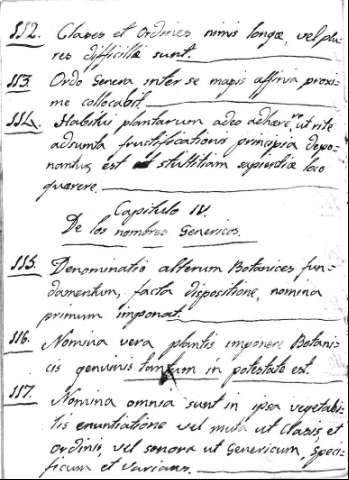 112. Clases et Ordines nimis longæ, vel plu-
res difficillæ sunt.
113. Ordo Genera inter se magis affinia proxi-
me collocabit.
114. Habitui plantarum adeo adhærere, ut rite
adsumta fructificationis principia depo-
nantur, est stultitiam sapientiæ loco
quærere.
Capitulo IV.
De los nombres Genericos.
115. Denominatio alterum Botanices fun-
damentum, facta dispositione, nomina
primum imponat.
116. Nomina vera plantis imponere Botani-
cis genuinis tantum in potestate est.
117. Nomina omnia sunt in ipsa vegetabi-
lis enuntiatione vel muta ut Clasis, et
Ordinis, vel sonora ut Genericum, Speci-
ficum et Varians.